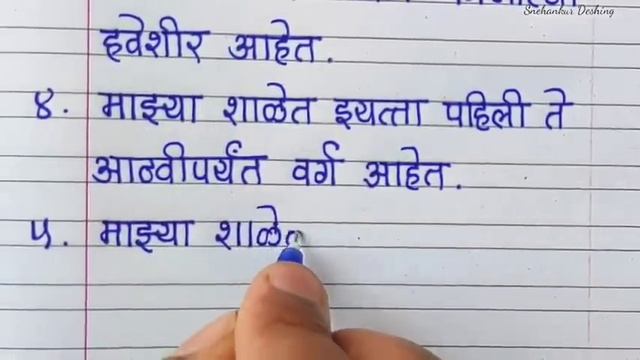 Snehankur Deshing
हवेशीर आहेत.
४. माझ्या शाळेत इयत्ता पहिली ते
आठवीपर्यंत वर्ग आहेत.
५. माझ्या शाळेत